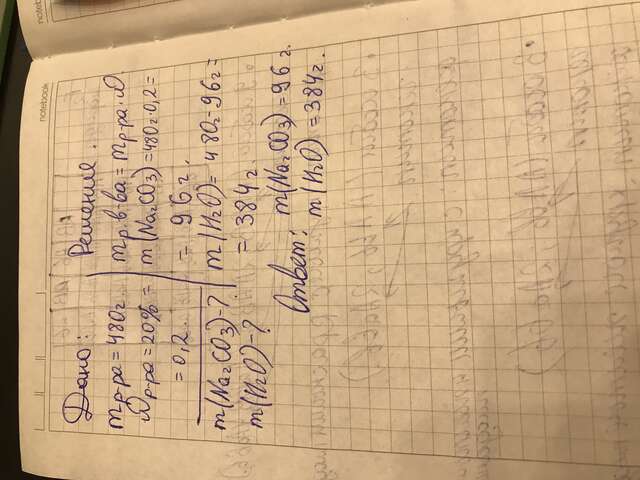 notebook
Дано:
mр-ра = 480г
ωр-ра = 20% =
= 0,2.
m(Na₂CO₃)-?
m(H₂O)-?
Решение.
mр.в-ва = mр-ра·ω.
m(Na₂CO₃)=480г·0,2=
= 96г.
m(H₂O)= 480г-96г=
= 384г.
Ответ: m(Na₂CO₃)=96г.
m(H₂O)=384г.